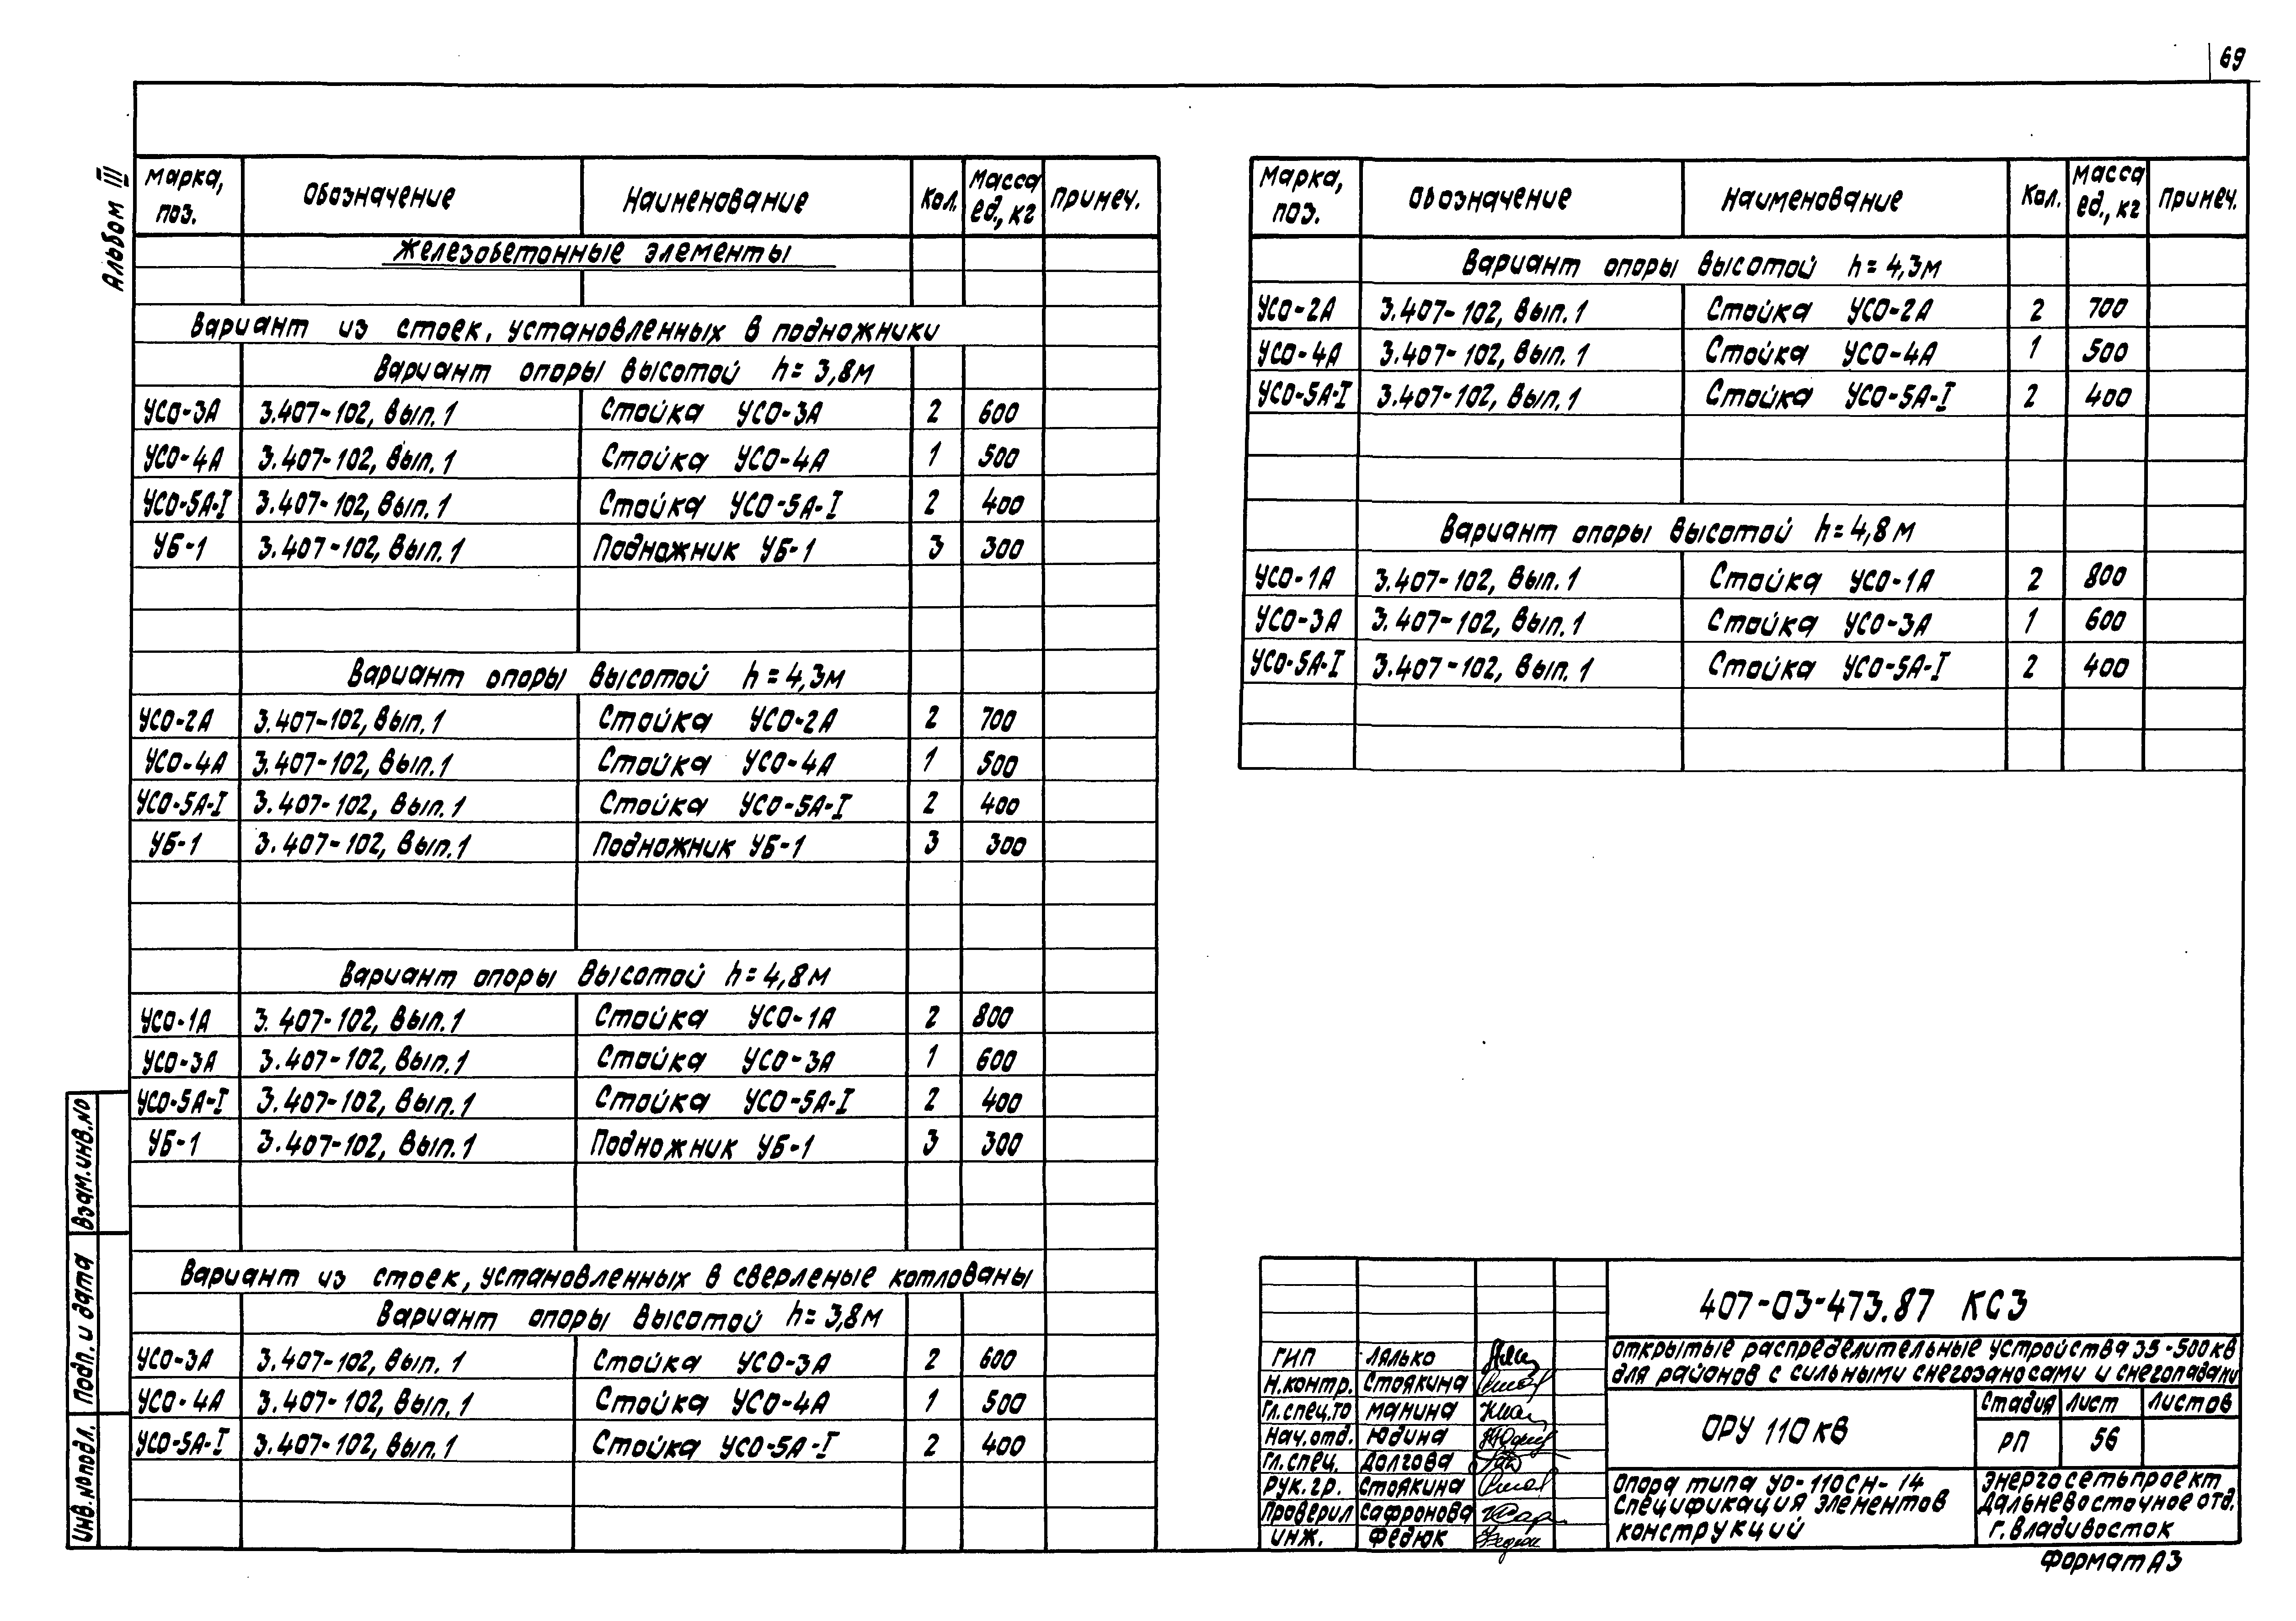 69
Альбом III
Марка, поз. Обозначение Наименование Кол. Масса ед., кг Примеч.
Железобетонные элементы
Вариант из стоек, установленных в подножники
Вариант опоры высотой h = 3,8м
УСО-3А 3.407-102, Вып. 1 Стойка УСО-3А 2 600
УСО-4А 3.407-102, Вып. 1 Стойка УСО-4А 1 500
УСО-5А-I 3.407-102, Вып. 1 Стойка УСО-5А-I 2 400
УБ-1 3.407-102, Вып. 1 Подножник УБ-1 3 300
Вариант опоры высотой h = 4,3м
УСО-2А 3.407-102, Вып. 1 Стойка УСО-2А 2 700
УСО-4А 3.407-102, Вып. 1 Стойка УСО-4А 1 500
УСО-5А-I 3.407-102, Вып. 1 Стойка УСО-5А-I 2 400
УБ-1 3.407-102, Вып. 1 Подножник УБ-1 3 300
Вариант опоры высотой h = 4,8м
УСО-1А 3.407-102, Вып. 1 Стойка УСО-1А 2 800
УСО-3А 3.407-102, Вып. 1 Стойка УСО-3А 1 600
УСО-5А-I 3.407-102, Вып. 1 Стойка УСО-5А-I 2 400
УБ-1 3.407-102, Вып. 1 Подножник УБ-1 3 300
Вариант из стоек, установленных в сверленые котлованы
Вариант опоры высотой h = 3,8м
УСО-3А 3.407-102, Вып. 1 Стойка УСО-3А 2 600
УСО-4А 3.407-102, Вып. 1 Стойка УСО-4А 1 500
УСО-5А-I 3.407-102, Вып. 1 Стойка УСО-5А-I 2 400
Марка, поз. Обозначение Наименование Кол. Масса ед., кг Примеч.
Вариант опоры высотой h = 4,3м
УСО-2А 3.407-102, Вып. 1 Стойка УСО-2А 2 700
УСО-4А 3.407-102, Вып. 1 Стойка УСО-4А 1 500
УСО-5А-I 3.407-102, Вып. 1 Стойка УСО-5А-I 2 400
Вариант опоры высотой h = 4,8м
УСО-1А 3.407-102, Вып. 1 Стойка УСО-1А 2 800
УСО-3А 3.407-102, Вып. 1 Стойка УСО-3А 1 600
УСО-5А-I 3.407-102, Вып. 1 Стойка УСО-5А-I 2 400
Взам. инв. №
Подп. и дата
Инв. № подл.
407-03-473.87 КС3
Открытые распределительные устройства 35-500 кВ
для районов с сильными снегозаносами и снегопадами
ГИП Лялько
Н.контр. Стоякина
Гл.спец.ТО Манина
Нач.отд. Юдина
Гл.спец. Долгова
Рук.гр. Стоякина
Проверил Сафронова
Инж. Федюк
ОРУ 110 кВ
Стадия Лист Листов
РП 56
Опора типа УО-110СН-14
Спецификация элементов
конструкций
Энергосетьпроект
Дальневосточное отд.
г. Владивосток
Формат А3